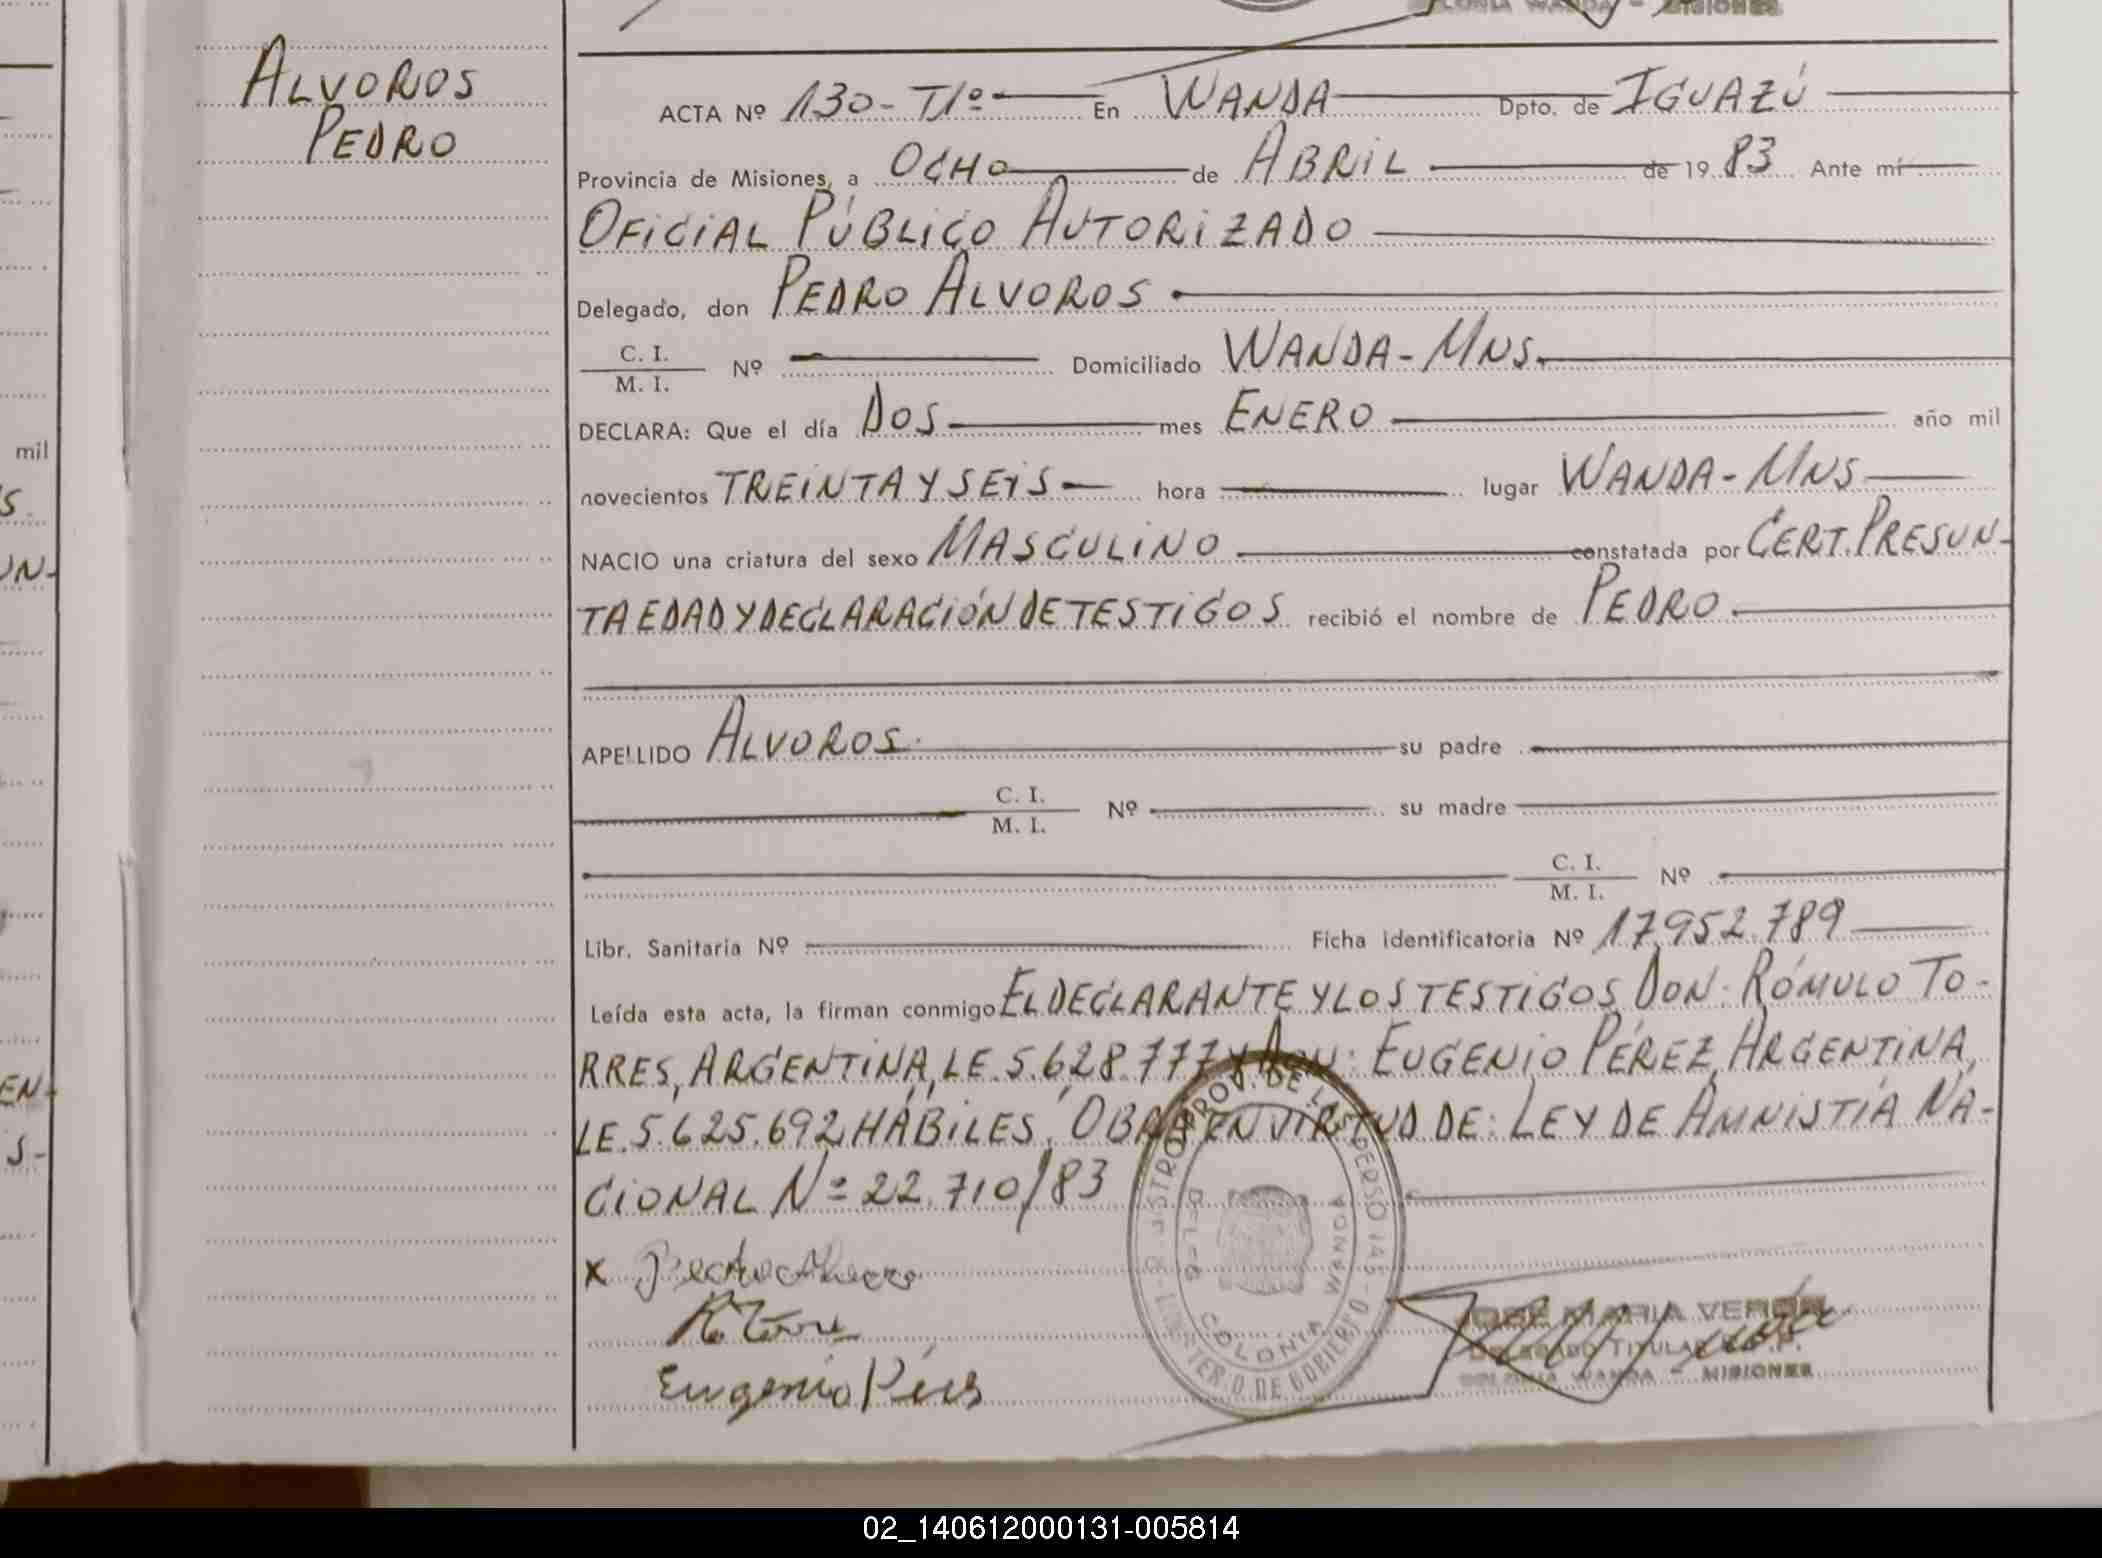 COLONIA WANDA - MISIONES
ALVOROS
PEDRO
ACTA Nº 130- Tº 1º En WANDA Dpto. de IGUAZÚ
Provincia de Misiones, a OCHO de ABRIL de 1983 Ante mí
OFICIAL PÚBLICO AUTORIZADO
Delegado, don PEDRO ALVOROS
C. I.
M. I. Nº Domiciliado WANDA - MNS.
DECLARA: Que el día DOS mes ENERO año mil
novecientos TREINTA Y SEIS hora lugar WANDA - MNS
NACIO una criatura del sexo MASCULINO constatada por CERT. PRESUN-
TA EDAD Y DECLARACIÓN DE TESTIGOS recibió el nombre de PEDRO
APELLIDO ALVOROS su padre
C. I.
M. I. Nº su madre
C. I.
M. I. Nº
Libr. Sanitaria Nº Ficha identificatoria Nº 17.952.789
Leída esta acta, la firman conmigo EL DECLARANTE Y LOS TESTIGOS DON: RÓMULO TO-
RRES, ARGENTINA, LE. 5.628.777 Y DON: EUGENIO PÉREZ, ARGENTINA,
LE. 5.625.692 HÁBILES, OBRA EN VIRTUD DE: LEY DE AMNISTÍA NA-
CIONAL Nº 22.710/83
x Pedro
Eugenio
COLONIA WANDA
JOSE MARIA VERON
DELEGADO TITULAR
COLONIA WANDA - MISIONES
mil
S
UN-
EN-
S-
02_140612000131-005814